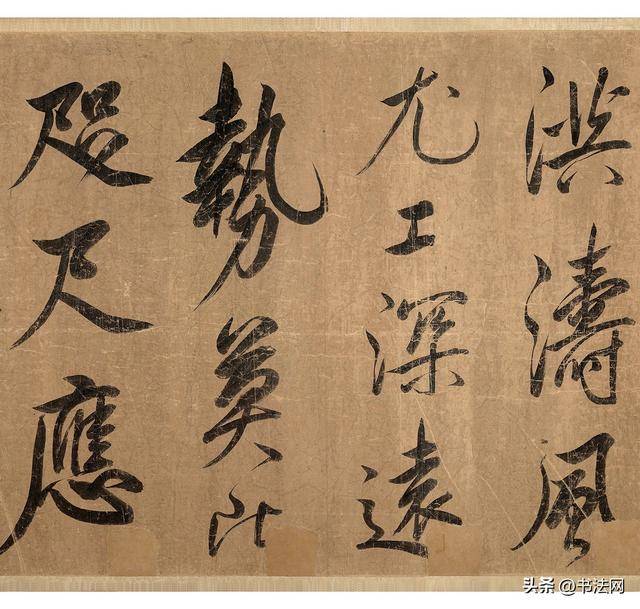 洪濤風
尤工深遠
勢莫比
咫尺應
头条 @书法网